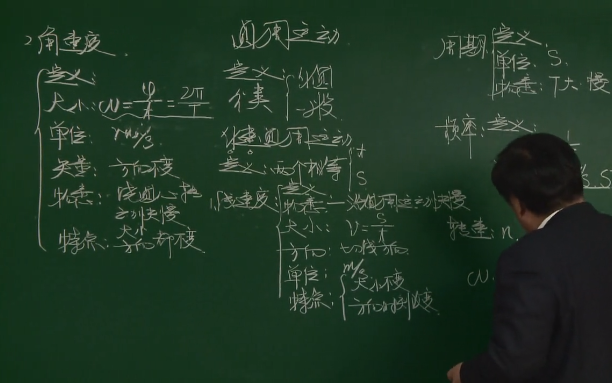 2角速度.
定义:
大小: ω=φ/t=2π/T
单位: rad/s
矢量: 方向不变
物意: 绕圆心转
动快慢
特点: 大小
方向都不变.
圆周运动.
定义:
分类 匀圆
一般
匀速圆周运动
定义: 两个相等 t
S
1.线速度: 定义
物意: 一沿圆周运动快慢
大小: v=S/t
方向: 切线方向.
单位: m/s
特点: 大小不变
方向时刻改变
周期 定义
单位: S.
物意: T大·慢
频率: 定义:
转速: n.
ω.